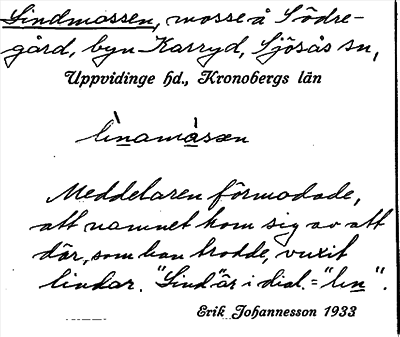 Lindmossen, mosse å Södre-
gård, byn Karryd, Sjösås sn,
Uppvidinge hd., Kronobergs län
lìnamàsæn
Meddelaren förmodade,
att namnet kom sig av att
där, som han trodde, vuxit
lindar. "Lind" är i dial. = "lin".
Erik Johannesson 1933